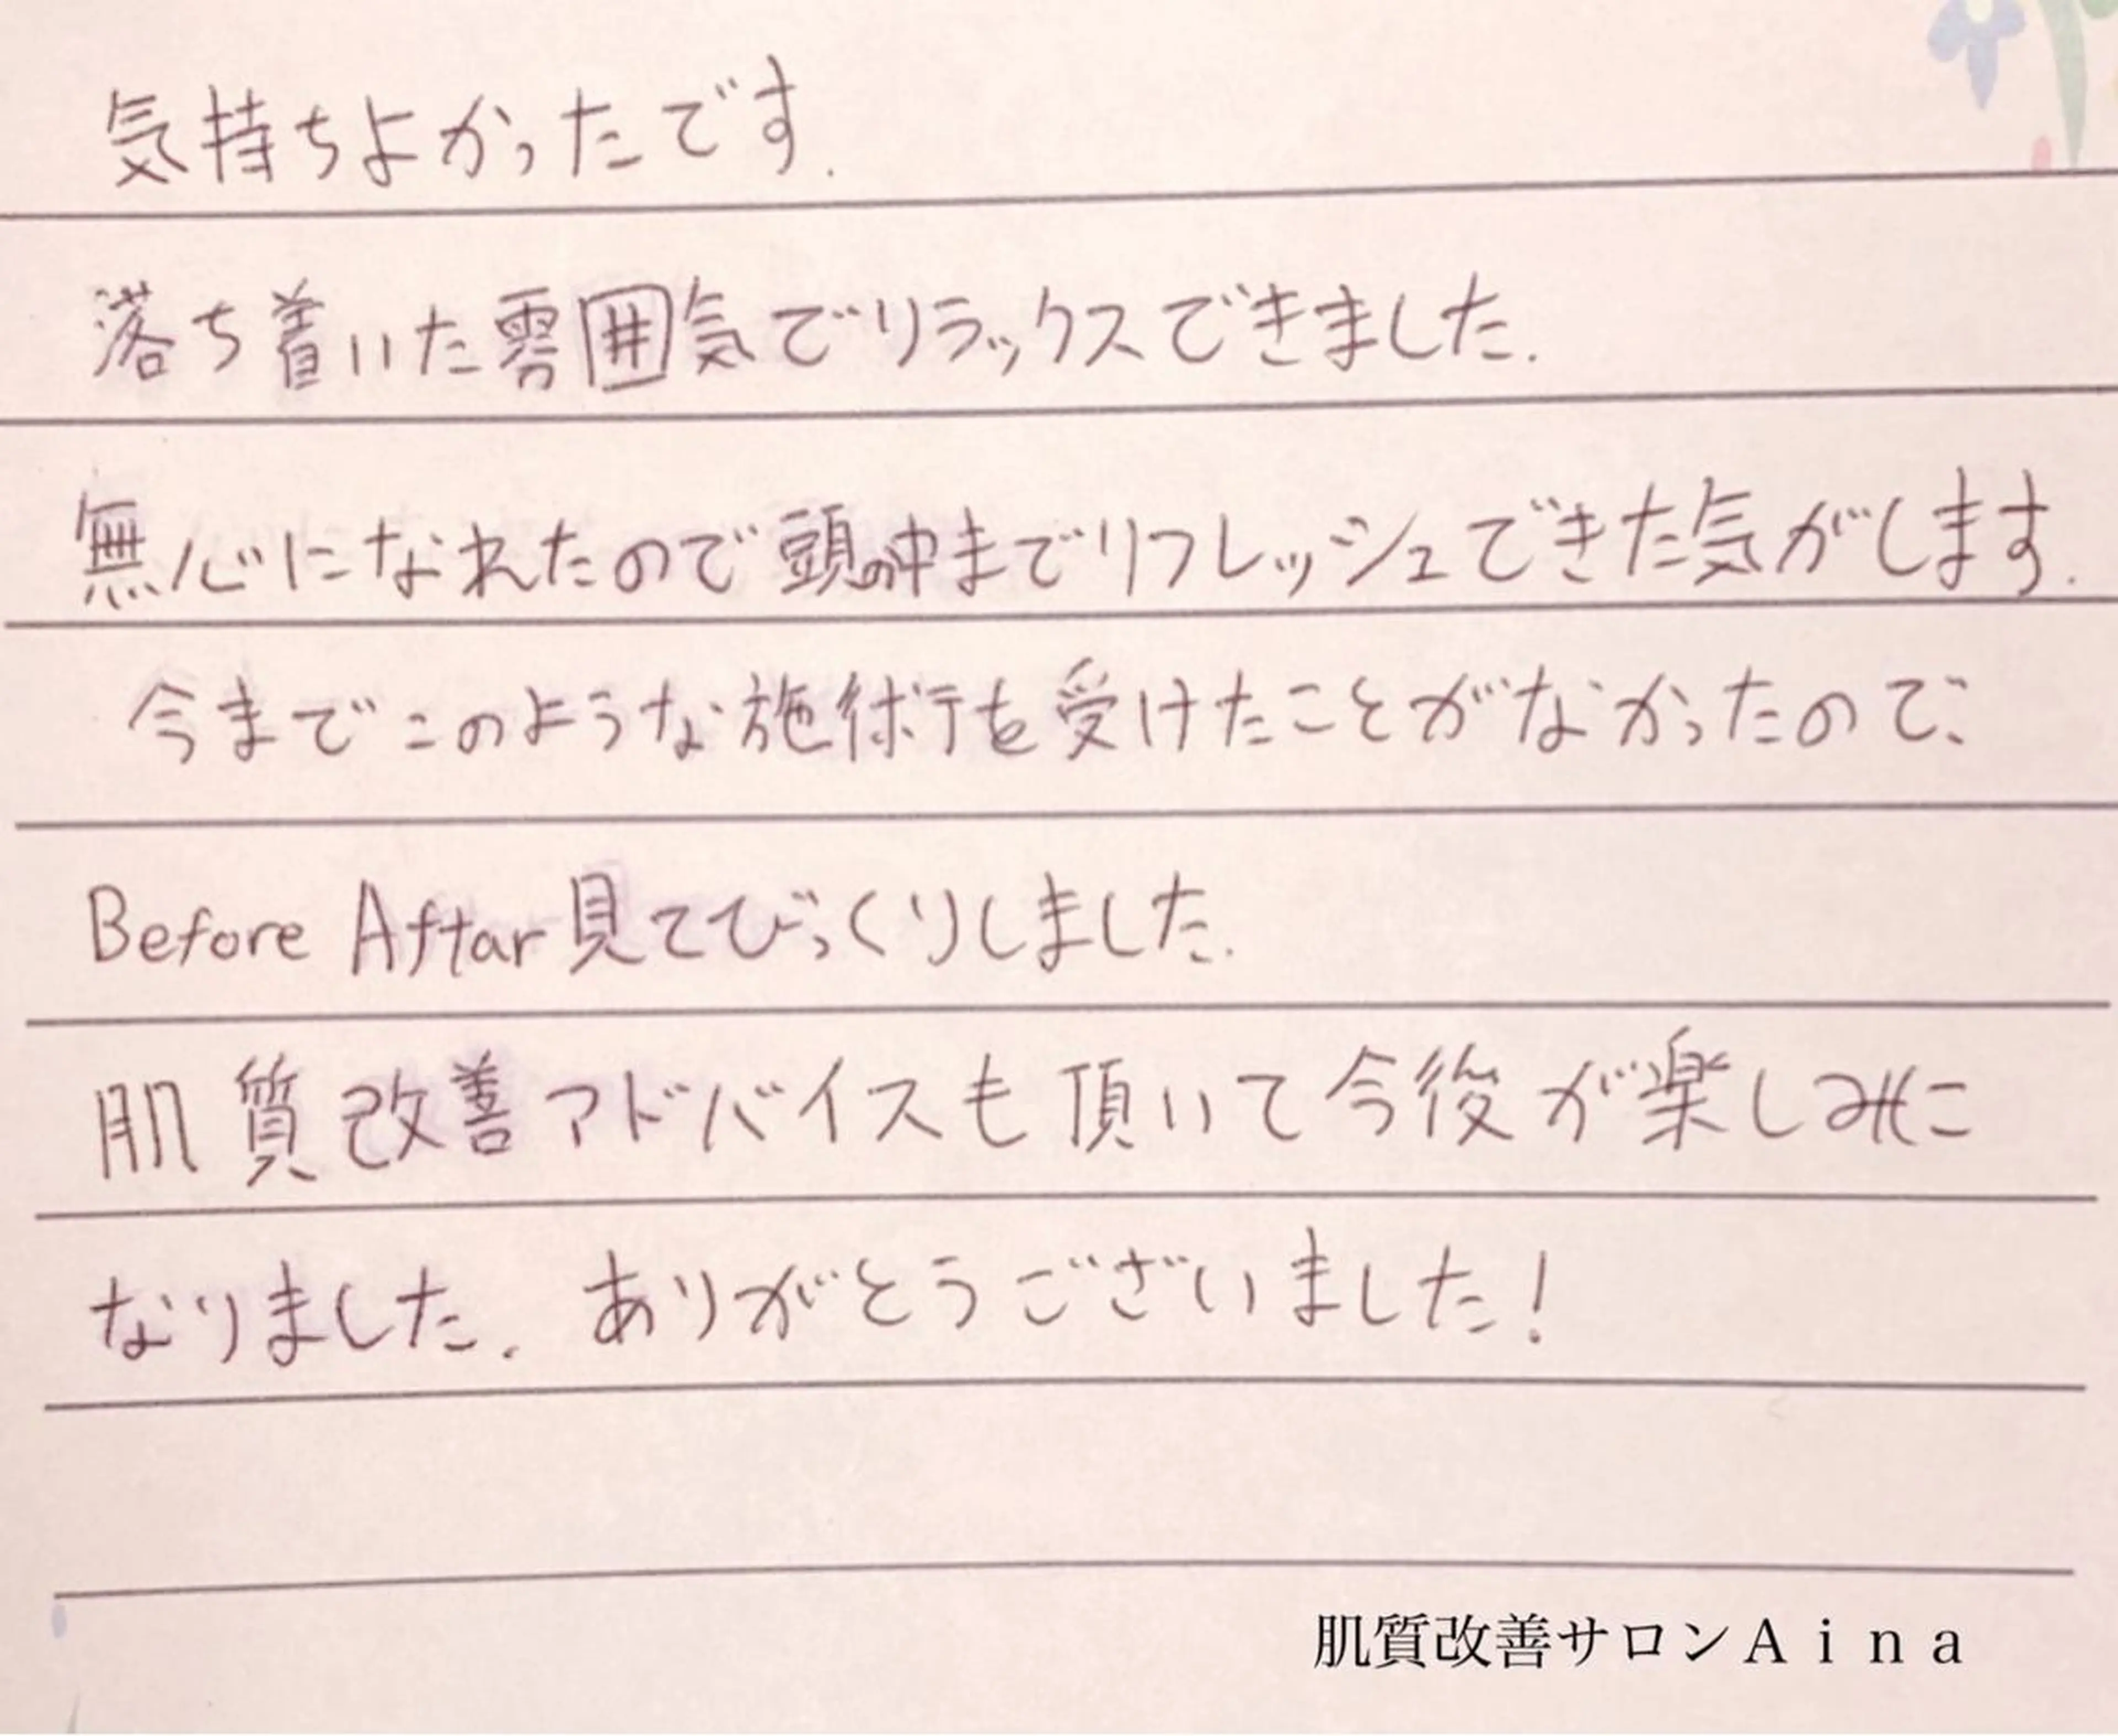 気持ちよかったです.
落ち着いた雰囲気でリラックスできました.
無心になれたので頭の中までリフレッシュできた気がします.
今までこのような施術を受けたことがなかったので、
Before Aftar 見てびっくりしました.
肌質改善アドバイスも頂いて今後が楽しみに
なりました. ありがとうございました!
肌質改善サロンAina